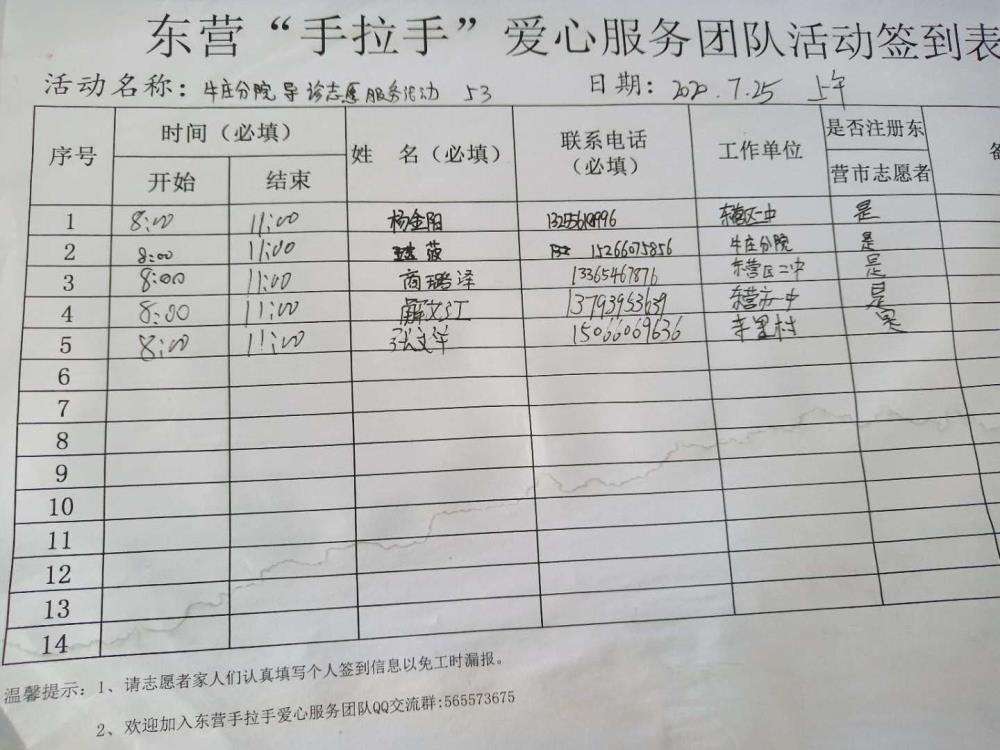 东营“手拉手”爱心服务团队活动签到表
活动名称：牛庄分院导诊志愿服务活动 53 日期：2020.7.25 上午
序号 时间（必填） 姓 名（必填） 联系电话（必填） 工作单位 是否注册东营市志愿者
开始 结束
1 8:00 11:00 杨金阳 是
2 8:00 11:00 15266075856 牛庄分院 是
3 8:00 11:00 商璐泽 13365467876 东营区二中 是
4 8:00 11:00 13793953639 东营市一中 是
5 8:00 11:00 张文洋 15066069636 是
6
7
8
9
10
11
12
13
14
温馨提示：1、请志愿者家人们认真填写个人签到信息以免工时漏报。
2、欢迎加入东营手拉手爱心服务团队QQ交流群:565573675